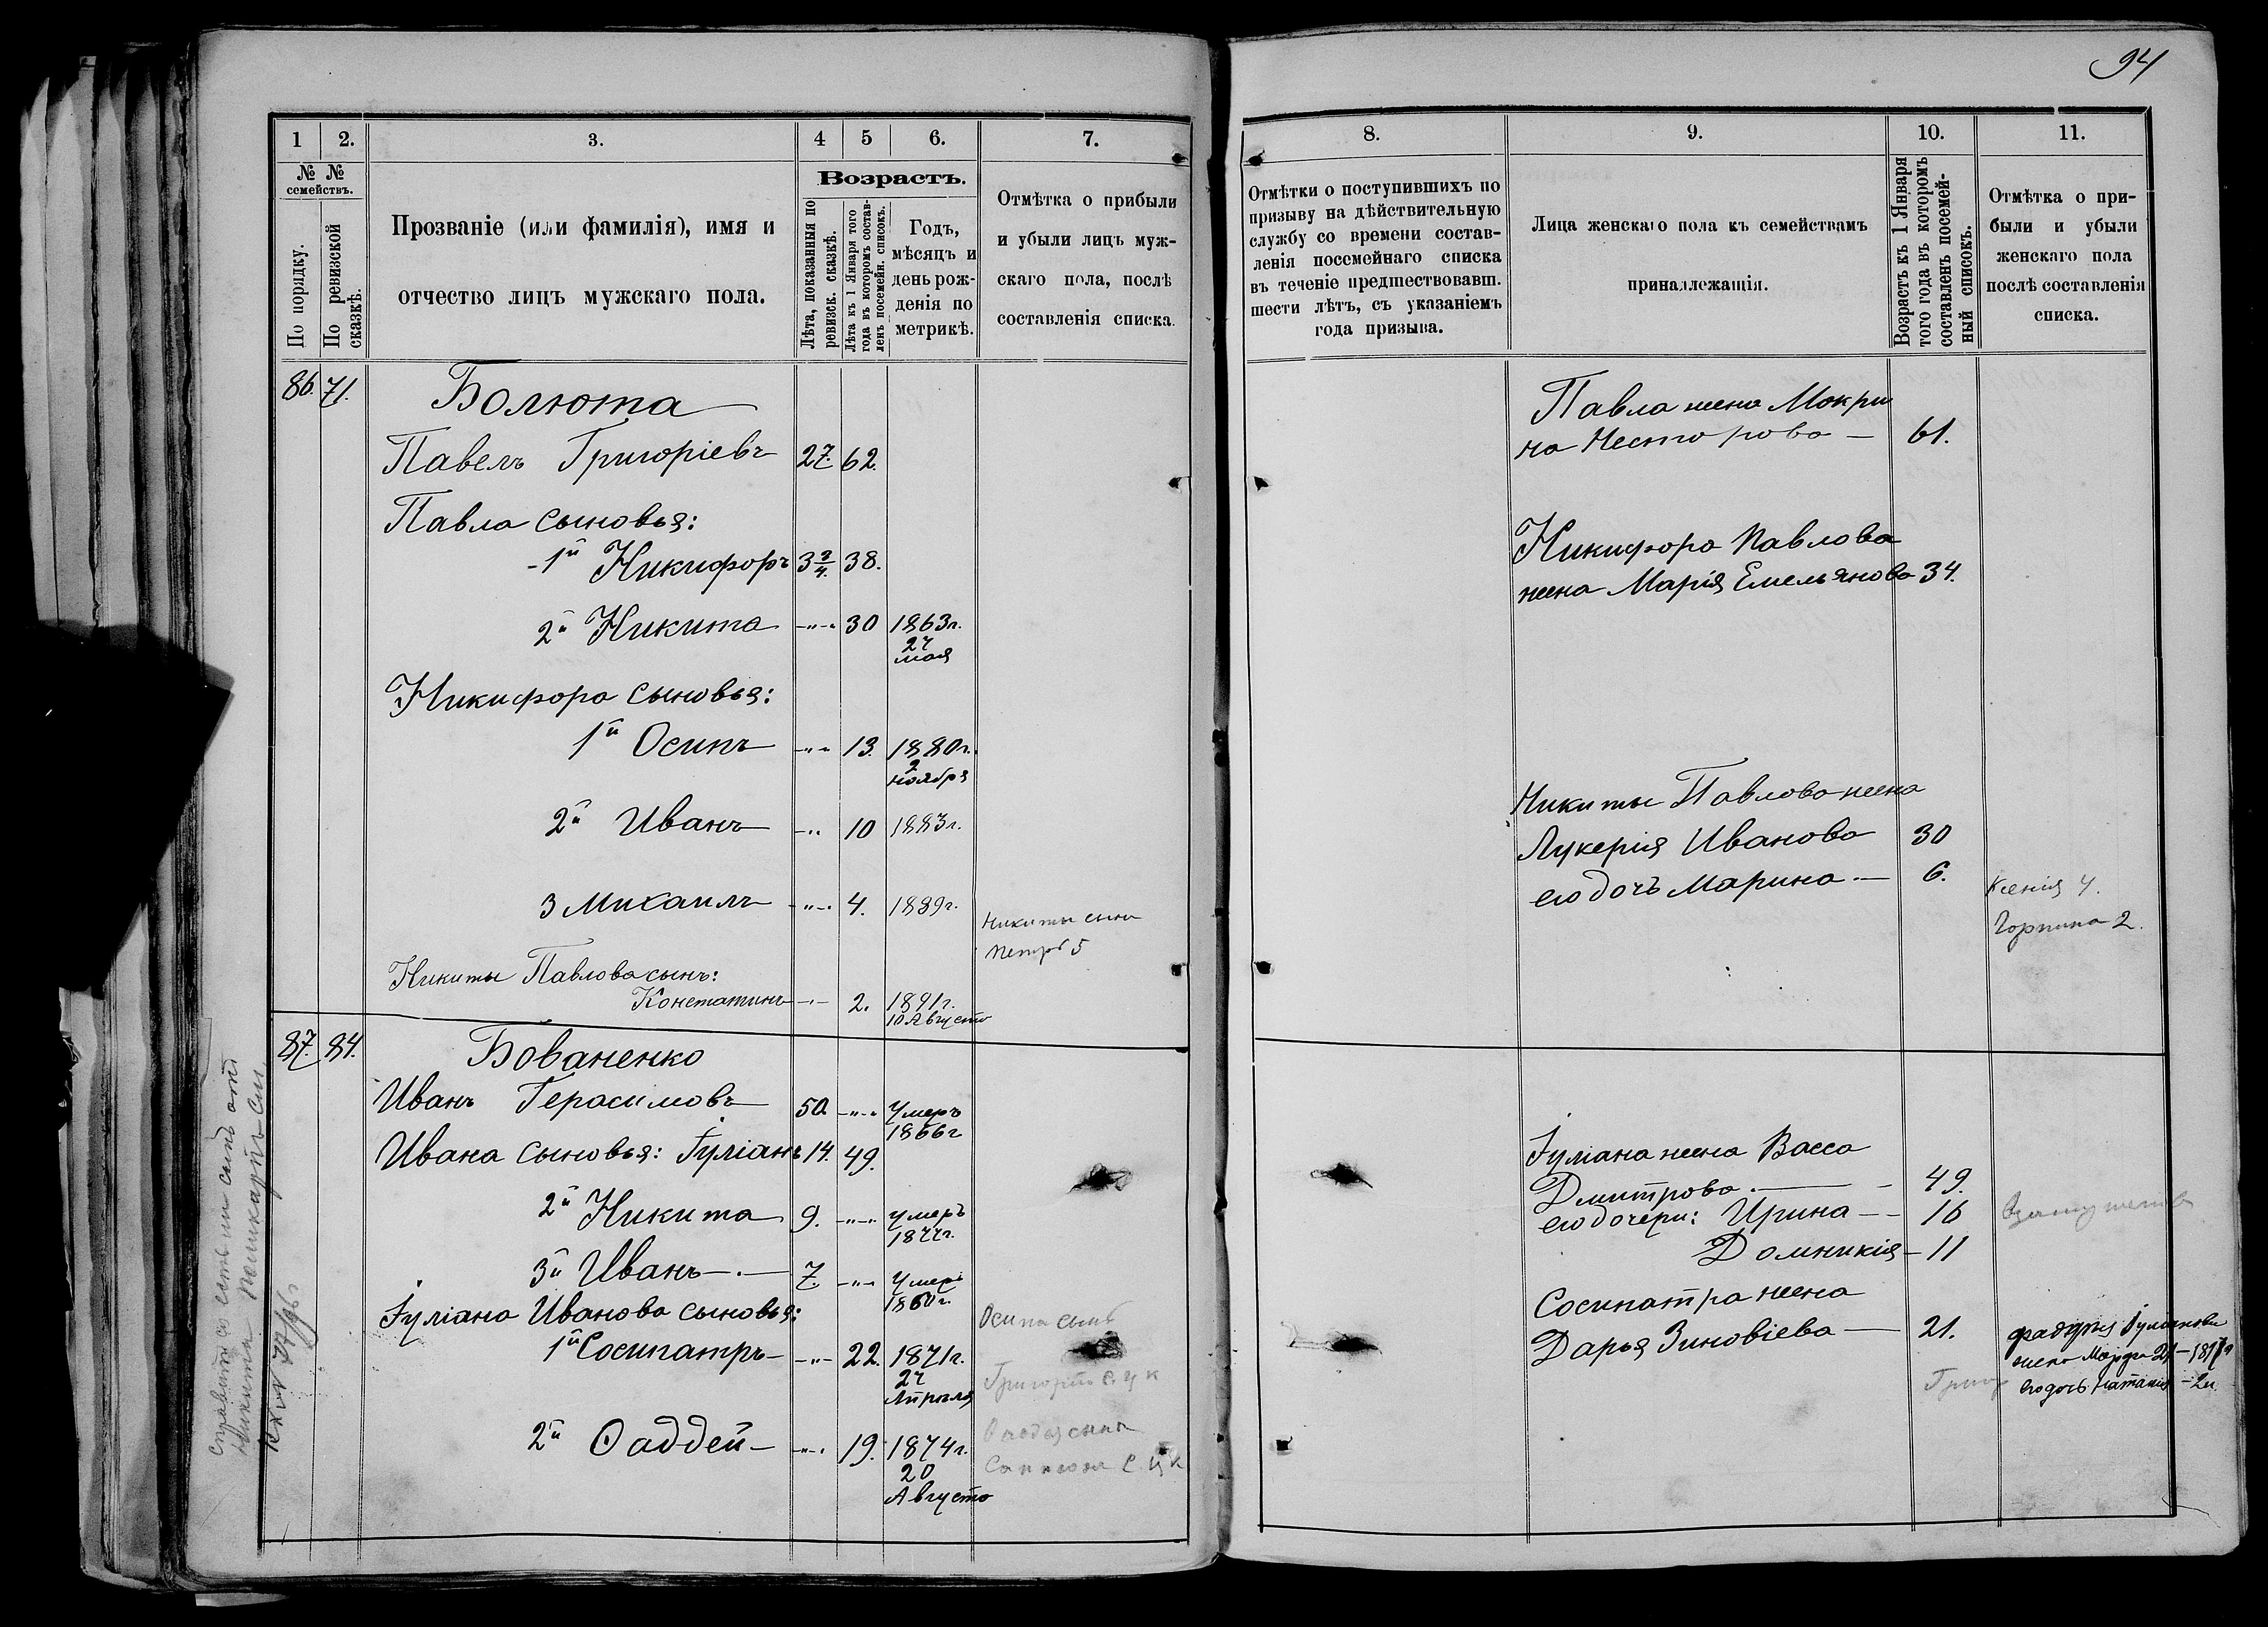 94
1
2.
3.
4
5
6.
7.
№ №
семействъ.
По порядку.
По ревизской
сказкѣ.
Прозваніе (или фамилія), имя и
отчество лицъ мужскаго пола.
Возрастъ.
Лѣта, показанныя по
ревизск. сказкѣ.
Лѣта къ 1 Января того
года въ которомъ состав-
ленъ посемейн. списокъ.
Годъ,
мѣсяцъ и
день рож-
денія по
метрикѣ.
Отмѣтка о прибыли
и убыли лицъ муж-
скаго пола, послѣ
составленія списка.
86. 71. Болюта
Павелъ Григоріевъ 27. 62.
Павла сыновья:
1й Никифоръ 3 3/4. 38.
2й Никита 30 1863г.
мая
Никифора сыновья:
1й Осипъ 13. 1880г.
2
ноября
2й Иванъ 10 1883г.
3 Михаилъ 4. 1889г.
Никиты сынъ
Петръ 5
Никиты Павлова сынъ:
Констатинъ 2. 1891г.
10 Августа
87. 84. Бованенко
Иванъ Герасимовъ 50. Умеръ
1866г
Ивана сыновья: Іуліанъ 14. 49.
2й Никита 9. Умеръ
3й Иванъ 7. Умеръ
1860г.
Іуліана Иванова сыновья:
Осипа сынъ
1й Сосипатръ 22. 1871г.
Апрѣля
Григорій
2й Ѳаддей 19. 1874г.
20
Августа
8.
9.
10.
11.
Отмѣтки о поступившихъ по
призыву на дѣйствительную
службу со времени состав-
ленія посемейнаго списка
въ теченіе предшествовавш.
шести лѣтъ, съ указаніемъ
года призыва.
Лица женскаго пола къ семействамъ
принадлежащія.
Возрастъ къ 1 Января
того года въ которомъ
составленъ посемей-
ный списокъ.
Отмѣтка о при-
были и убыли
женскаго пола
послѣ составленія
списка.
Павла жена Мокри
на Несторова 61.
Никифора Павлова
жена Марія Емельянова 34.
Никиты Павлова жена
Лукерія Иванова 30
его дочь Марина 6.
Ксенія 4.
Горпина 2.
Іуліана жена Васса
Дмитрова 49.
его дочери: Ирина 16
Домникія 11
Сосипатра жена
Дарья Зиновіева 21.
жена
его дочь